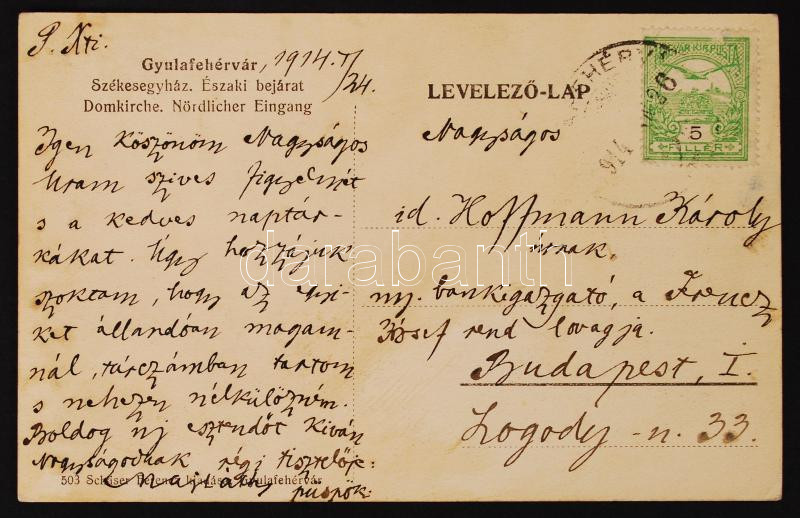 P. Xti.
Gyulafehérvár, 1914. I/24.
Székesegyház. Északi bejárat
Domkirche. Nördlicher Eingang
Igen köszönöm Nagyságos
Uram szives figyelmét
s a kedves naptár-
kákat. Úgy hozzájuk
szoktam, hogy az
ket állandóan magam-
nál, tárczámban tartom
s nehezen nélkülözném.
Boldog uj esztendőt kíván
Nagyságodnak régi tisztelője:
Majláth
püspök
503 Schäser Ferencz kiadása Gyulafehérvár
LEVELEZŐ-LAP
MAGYAR KIR. POSTA
5
FILLÉR
FEHÉRV
914
26
Nagyságos
id. Hoffmann Károly
úrnak,
ny. bankigazgató, a Ferencz
József rend lovagja.
Budapest, I.
Logody-u. 33.
darabanth